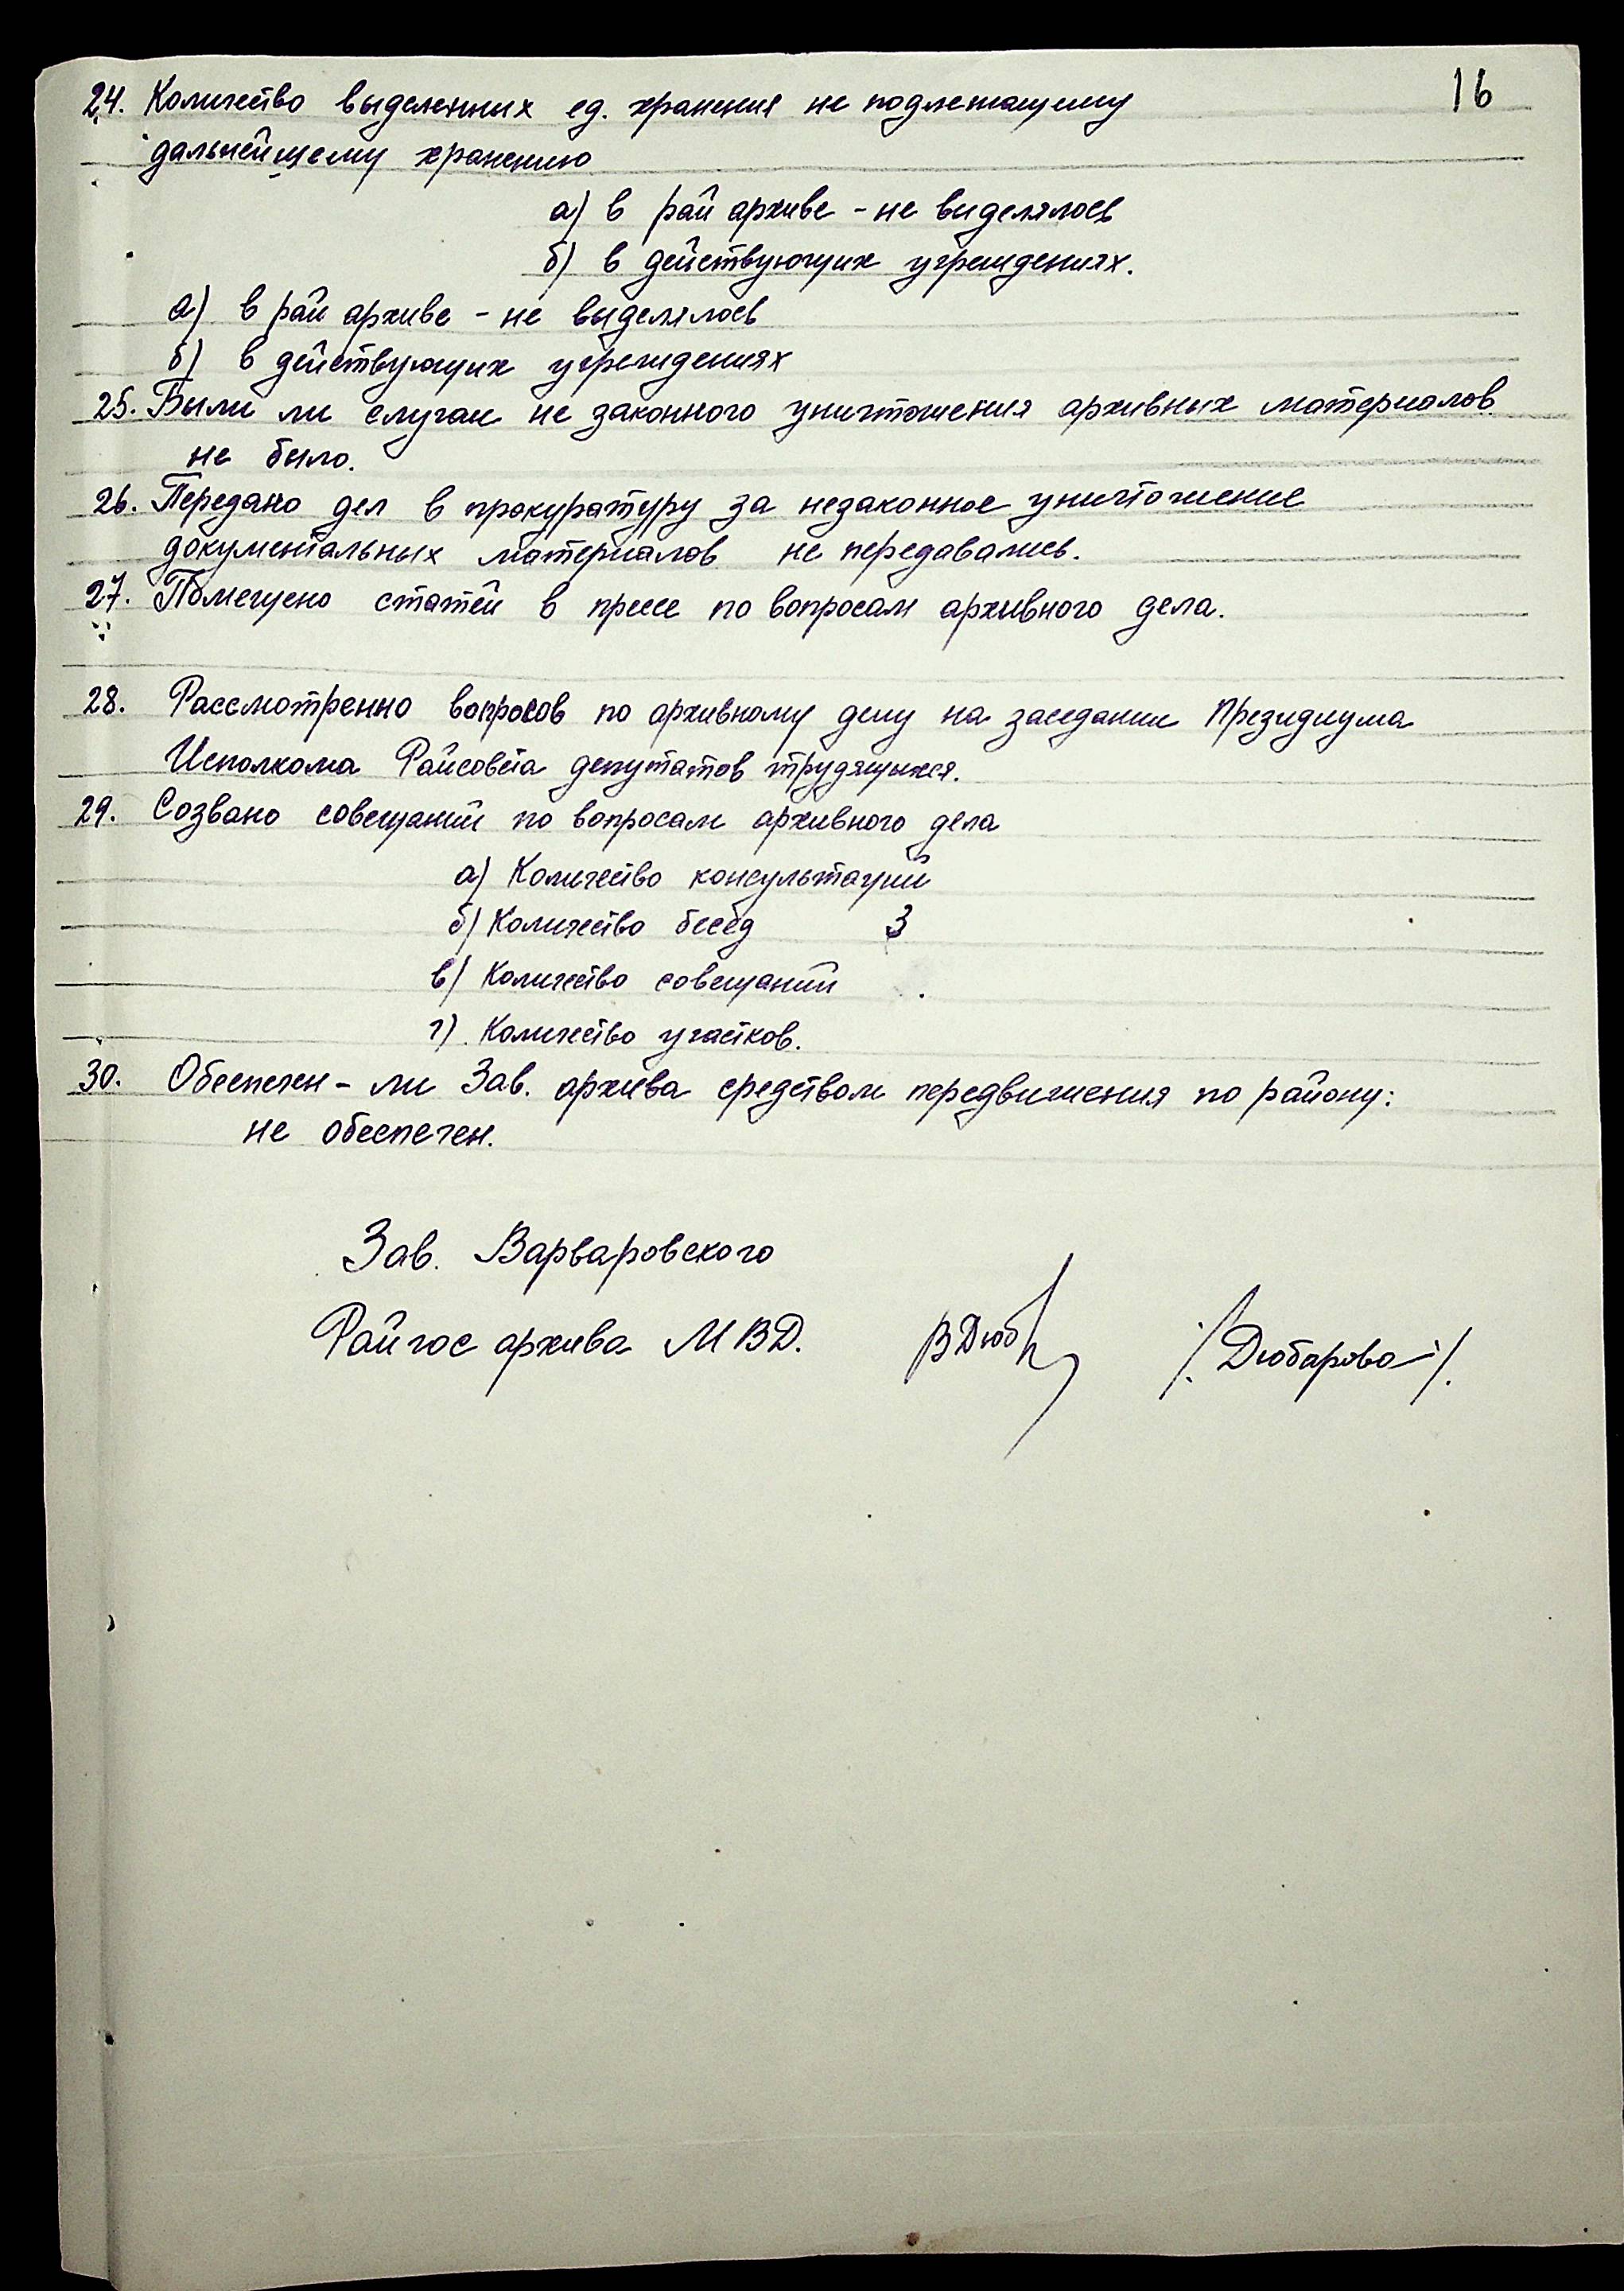 16
24. Количество выделенных ед. хранения не подлежащему
дальнейщему хранению
а) в рай архиве - не выделялось
б) в действующих учреждениях.
а) в рай архиве - не выделялось
б) в действующих учреждениях
25. Были ли случаи не законного уничтожения архивных материалов
не было.
26. Передано дел в прокуратуру за незаконное уничтожение
документальных материалов не передавались.
27. Помещено статей в прессе по вопросам архивного дела.
28. Рассмотренно вопросов по архивному делу на заседании Президиума
Исполкома Райсовета депутатов трудящихся.
29. Созвано совещаний по вопросам архивного дела
а) Количество консультаций
б) Количество бесед 3
в) Количество совещаний
г). Количество участков.
30. Обеспечен - ли Зав. архива средством передвижения по району:
не обеспечен.
Зав. Варваровского
Райгос архива МВД. ВДюб /Дюбарова/.